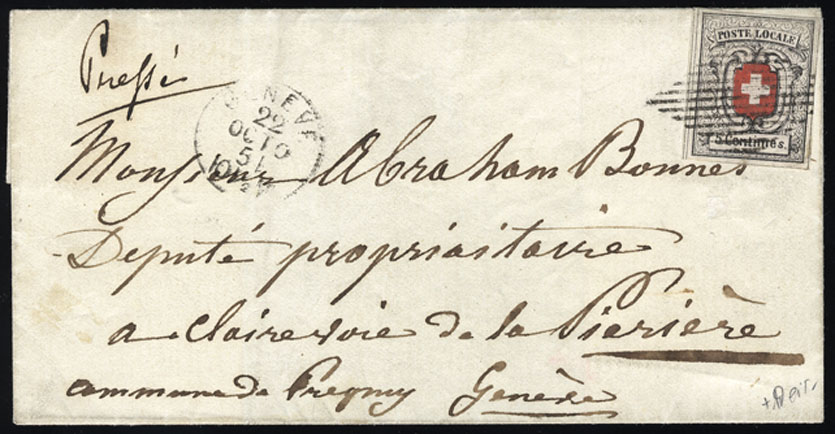 Pressé
POSTE LOCALE
5 Centimes.
GENÈVE
22
OCTO
51
Monsieur Abraham Bonnet
Deputé propriaitaire
a claire voie de la Pierière
commune de Pregny Genève